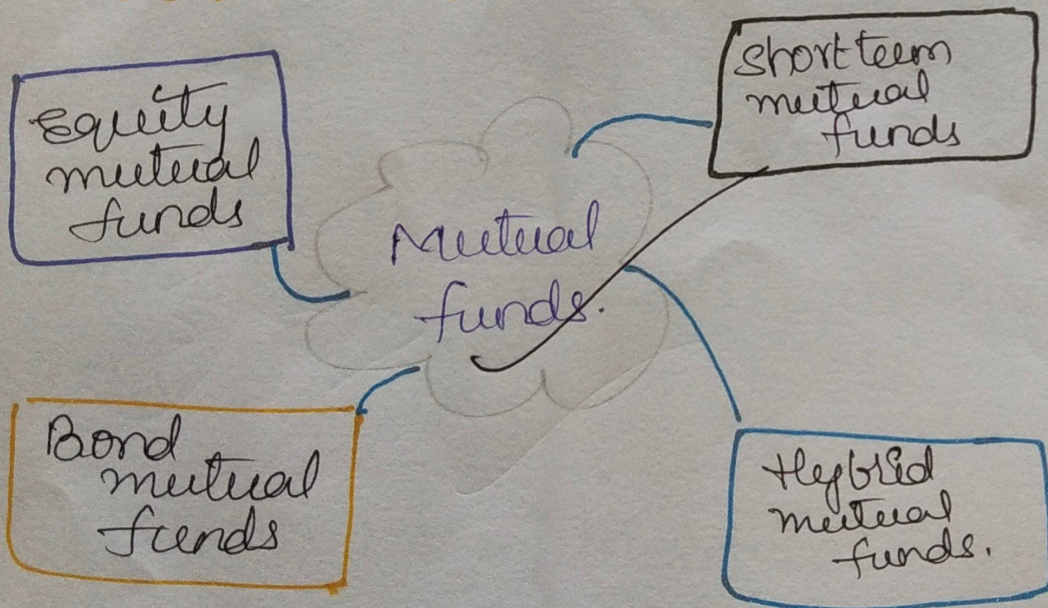 Equity
mutual
funds
Short term
mutual
funds
Mutual
funds.
Bond
mutual
funds
Hybrid
mutual
funds.